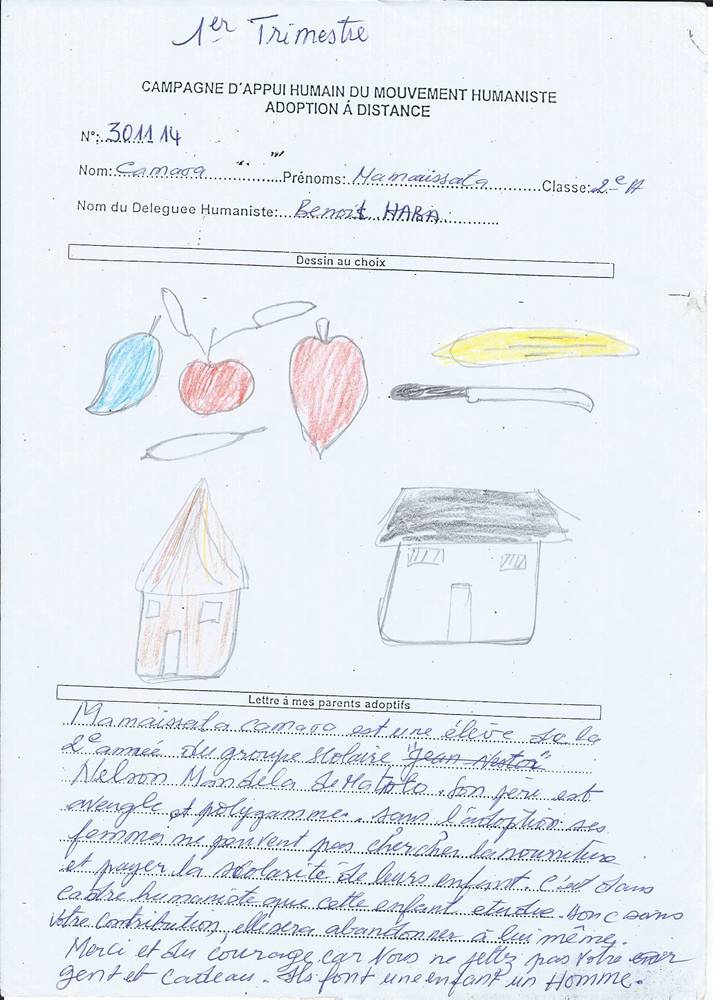 1er Trimestre
CAMPAGNE D'APPUI HUMAIN DU MOUVEMENT HUMANISTE
ADOPTION Á DISTANCE
N°: 301114
Nom: Camara Prénoms: Mamaissata Classe: 2e A
Nom du Deleguee Humaniste: Benoit HABA
Dessin au choix
Lettre á mes parents adoptifs
Mamaissata camara est une élève de la
2e année du groupe scolaire "Jean Nestor"
Nelson Mandela de Matoto. Son père est
aveugle et polygamme. sans l'adoption ses
femmes ne peuvent pas chercher la nourriture
et payer la scolarité de leurs enfant. C'est dans
cadre humaniste que cette enfant etudie. Donc sans
votre contribution, elle sera abandonner à lui même.
Merci et du courage car Vous ne jettez pas votre
gent et cadeau. Ils font une enfant un Homme.